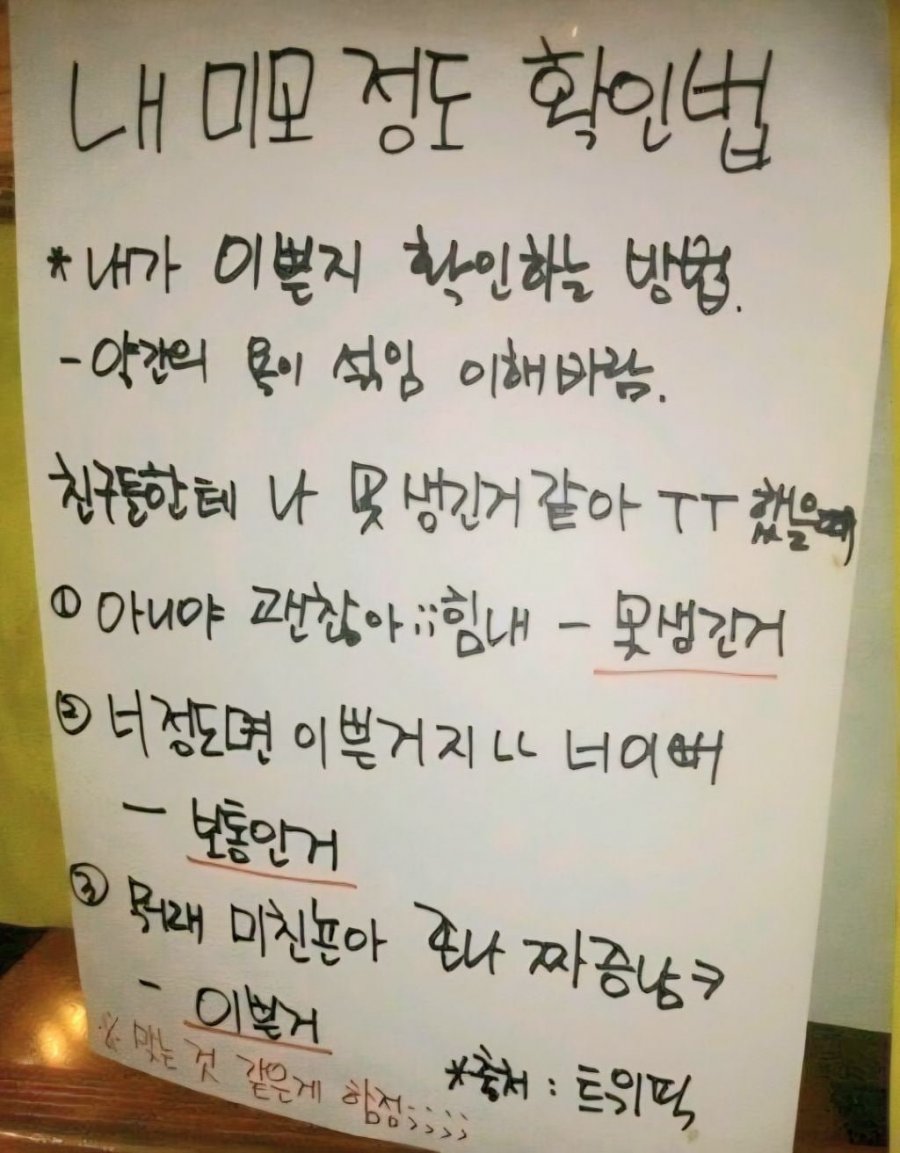 내 미모 정도 확인법
*내가 이쁜지 확인하는 방법.
-약간의 욕이 섞임 이해바람.
친구들한테 나 못생긴거같아 ㅜㅜ 했을때
① 아니야 괜찮아;;힘내 - 못생긴거
② 너정도면 이쁜거지ㄴㄴ 너이뻐
- 보통인거
③ 뭐래 미친년아 존나 짜증남ㅋ
- 이쁜거
※ 맞는 것 같은게 함정;;;;
*출처 : 트위픽